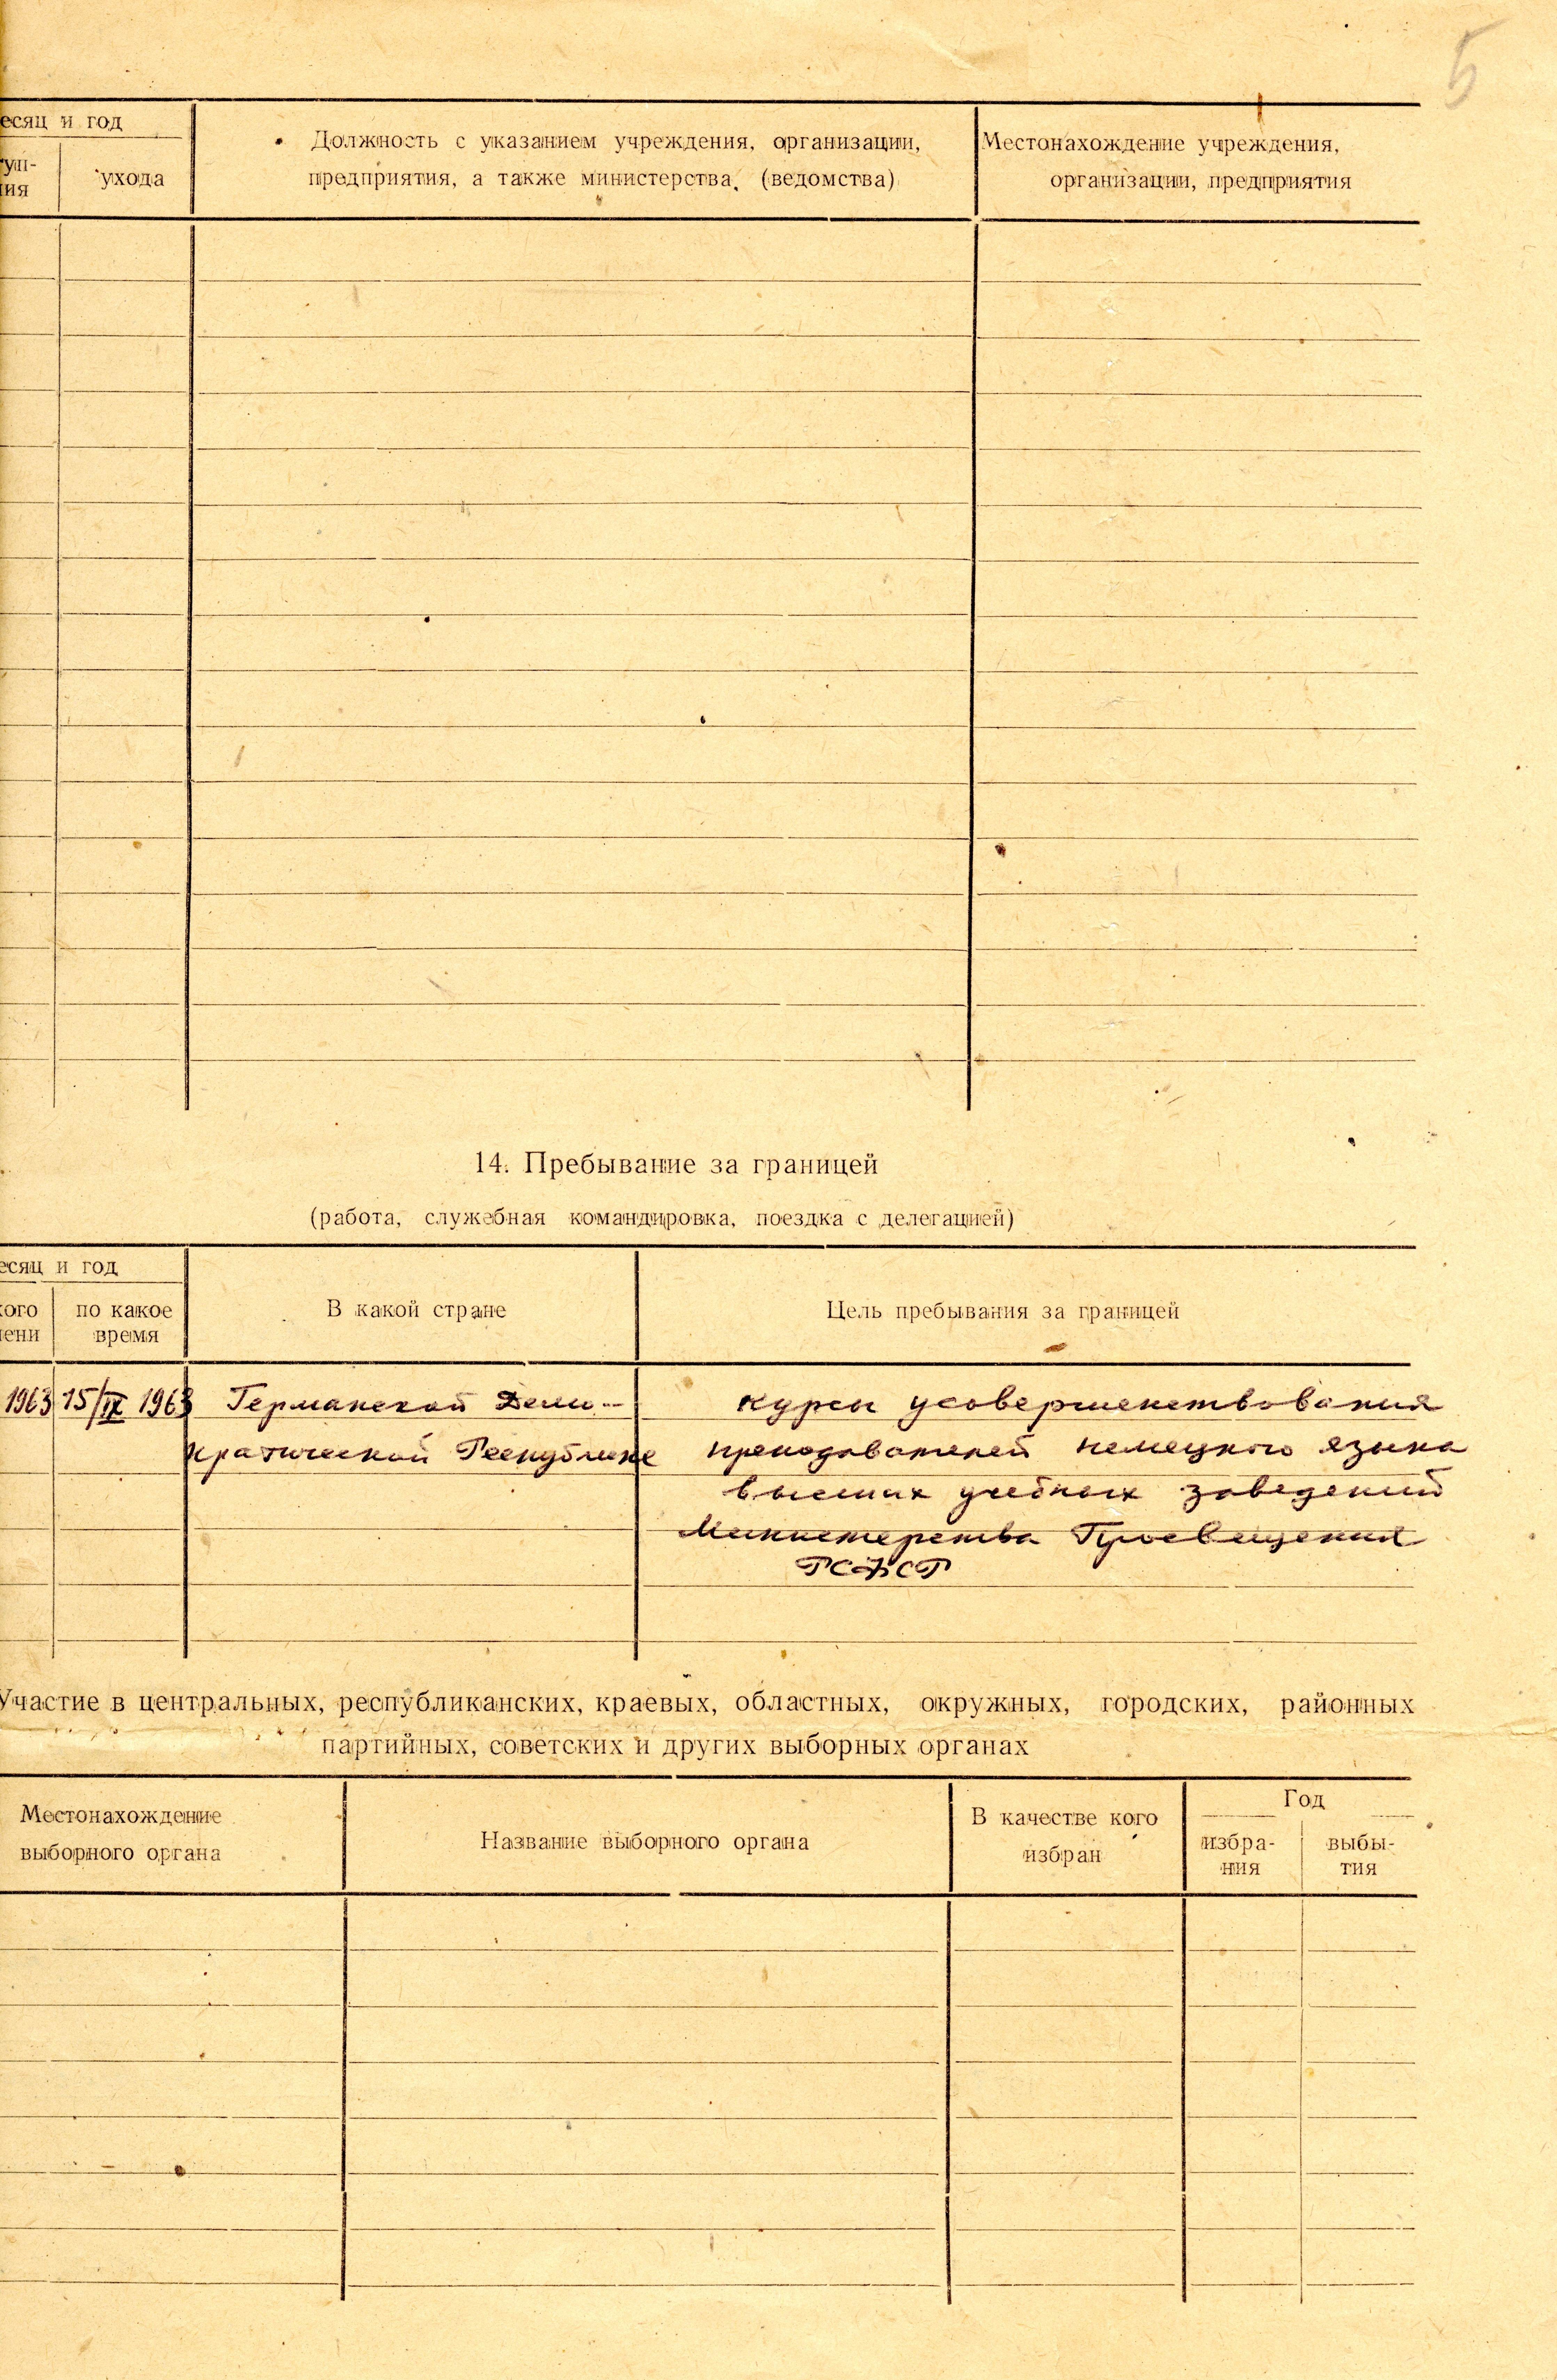 5
есяц и год
Должность с указанием учреждения, организации,
Местонахождение учреждения,
уп-
ухода
предприятия, а также министерства, (ведомства)
организации, предприятия
ния
14. Пребывание за границей
(работа, служебная командировка, поездка с делегацией)
есяц и год
кого
по какое
В какой стране
Цель пребывания за границей
ени
время
1963 15/IX 1963 Германской Демо-
курсы усовершенствования
кратической Республике
преподавателей немецкого языка
высших учебных заведений
Министерства Просвещения
РСФСР
Участие в центральных, республиканских, краевых, областных, окружных, городских, районных
партийных, советских и других выборных органах
Местонахождение
выборного органа
Название выборного органа
В качестве кого
избран
Год
избра-
выбы-
ния
тия